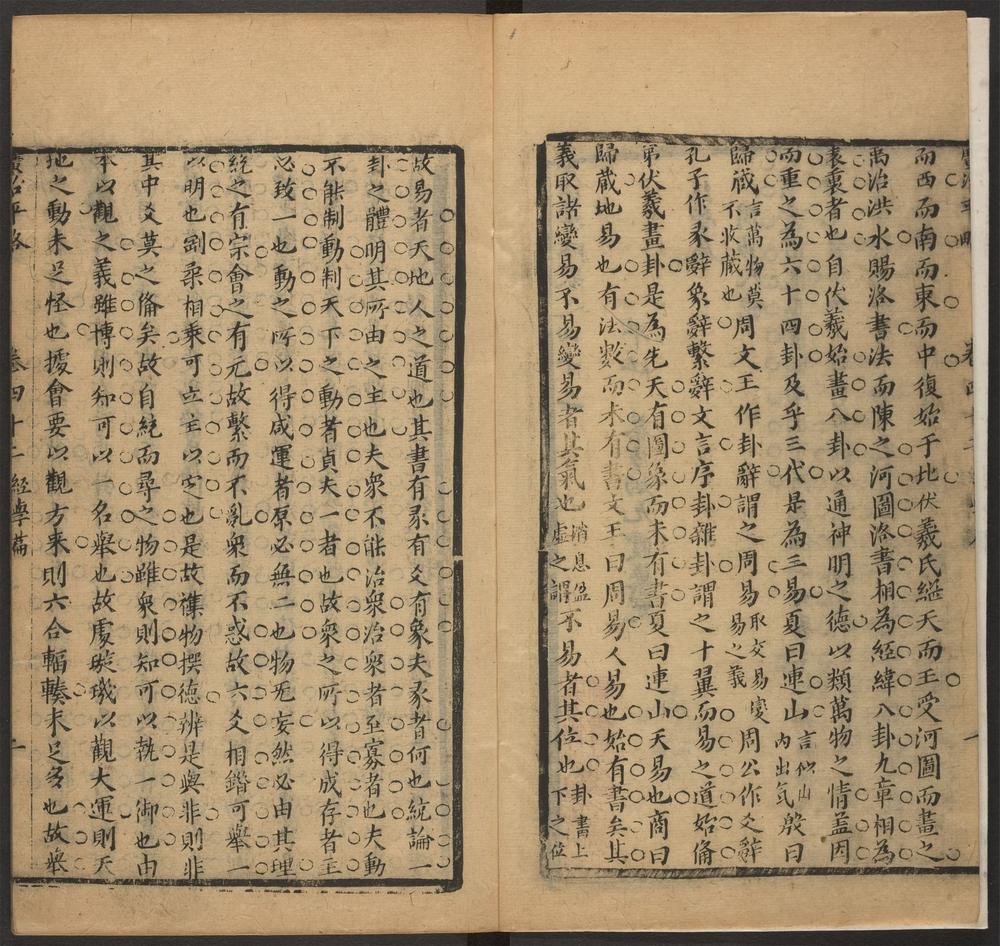 而西而南而東而中復始于北伏羲氏繼天而王受河圖而畫之
禹治洪水賜洛書法而陳之河圖洛書相為經緯八卦九章相為
表裏者也自伏羲始畫八卦以通神明之德以類萬物之情益因
而重之為六十四卦及乎三代是為三易夏曰連山言似山內出气殷曰
歸藏言萬物莫不收藏也周文王作卦辭謂之周易取交易變易之義周公作爻辭
孔子作彖辭象辭繫辭文言序卦雜卦謂之十翼而易之道始俻
第伏羲畫卦是為先天有圖象而未有書夏曰連山天易也商曰
歸藏地易也有法數而未有書文王曰周易人易也始有書矣其
義取諸變易不易變易者其氣也消息盈虛之謂不易者其位也卦書上下之位
故易者天地人之道也其書有彖有爻有象夫彖者何也統論一
卦之體明其所由之主也夫衆不能治衆治衆者至寡者也夫動
不能制動制天下之動者貞夫一者也故衆之所以得咸存者主
必致一也動之所以得咸運者原必無二也物无妄然必由其理
統之有宗會之有元故繫而不亂衆而不惑故六爻相錯可舉一
以明也剛柔相乘可立主以定也是故襍物撰德辨是與非則非
其中爻莫之俻矣故自統而尋之物雖衆則知可以執一御也由
本以觀之義雖博則知可以一名舉也故處璇璣以觀大運則天
地之動未足怪也據會要以觀方来則六合輻輳未足多也故舉
卷四十二 經學篇 一